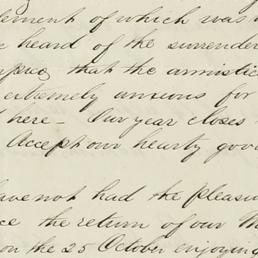 lement of which was
heard of the surrender
that the armistic
extremely anxious for
here - Our year closes
Accept our hearty goo
have not had the pleasu
ce the return of our
on the 25 October enjoying